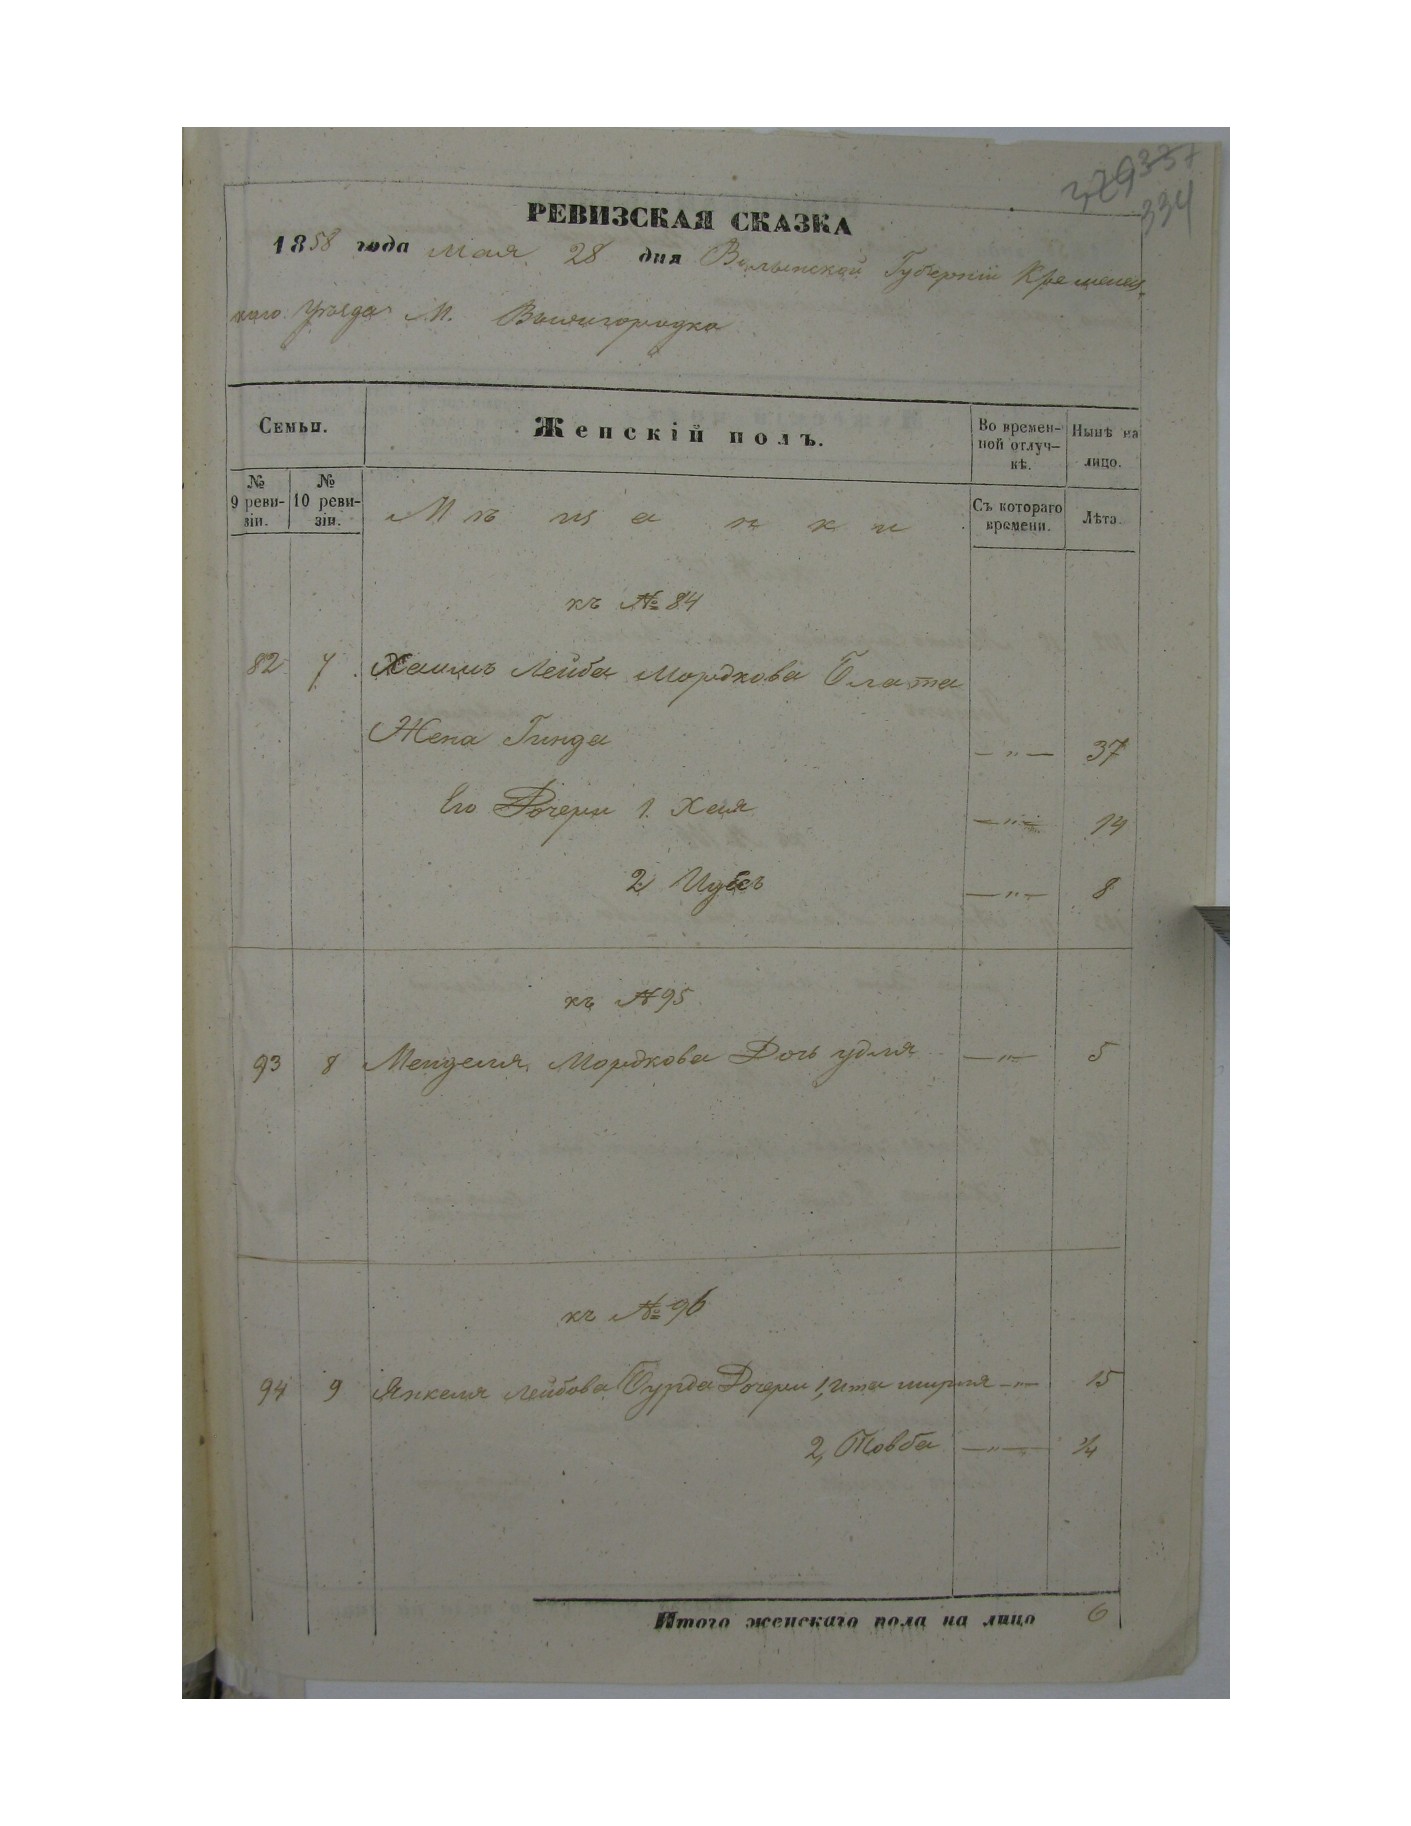 337
329
334
РЕВИЗСКАЯ СКАЗКА
1858 года Мая 28 дня Волынской Губерніи Кременец-
каго Уѣзда М. Вышгородка
Семьи.
Женскій полъ.
Во времен-
ной отлуч-
кѣ.
Нынѣ на
лицо.
№
9 реви-
зіи.
№
10 реви-
зіи.
Мѣщанки
Съ котораго
времени.
Лѣта.
къ № 84
82 7 Хаимъ Лейба Мордкова Блата
Жена Гинда — " — 37
Его Дочери 1. Хая — " — 14
2 — " — 8
къ № 95
93 8 Менделя Мордкова Дочь удля — " — 5
къ № 96
94 9 Янкеля Лейбова Бурда Дочери 1, ита мирля — " — 15
2, Товба — " — 1/4
Итого женскаго пола на лицо 6